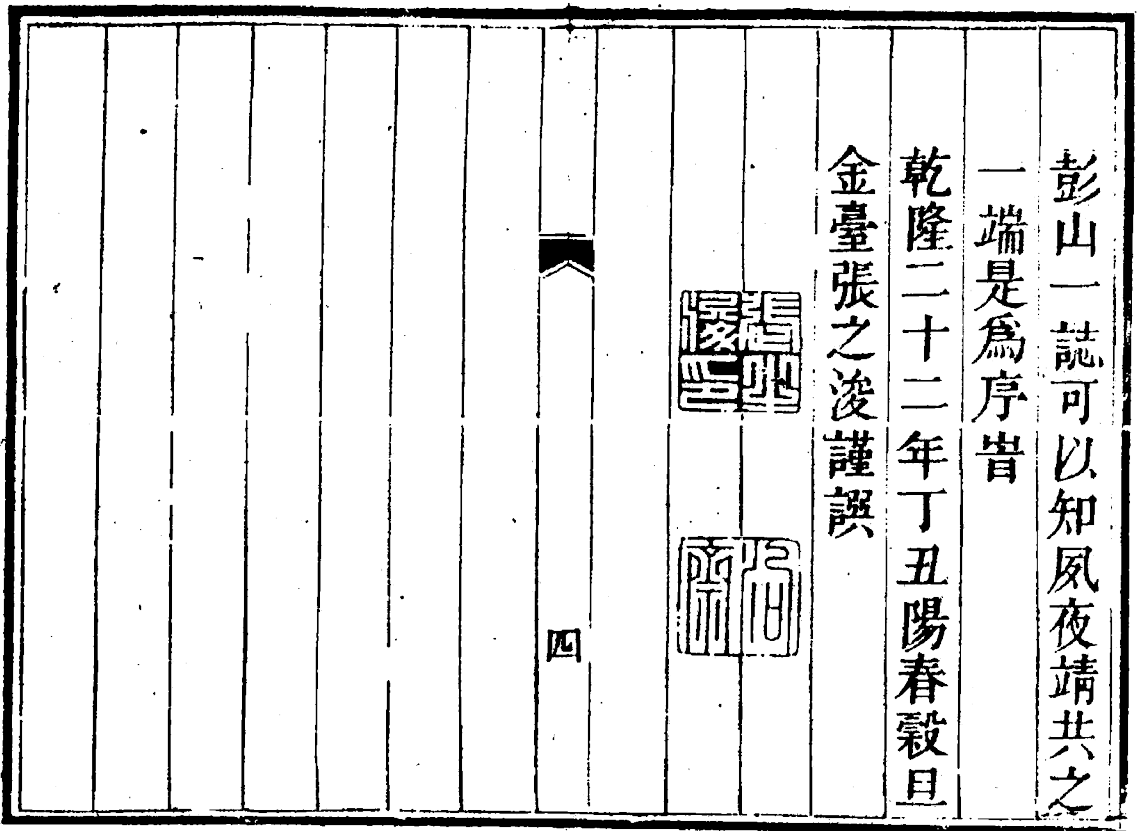 彭山一誌可以知夙夜靖共之
一端是爲序旹
乾隆二十二年丁丑陽春穀旦
金臺張之浚謹譔
張之浚印
四